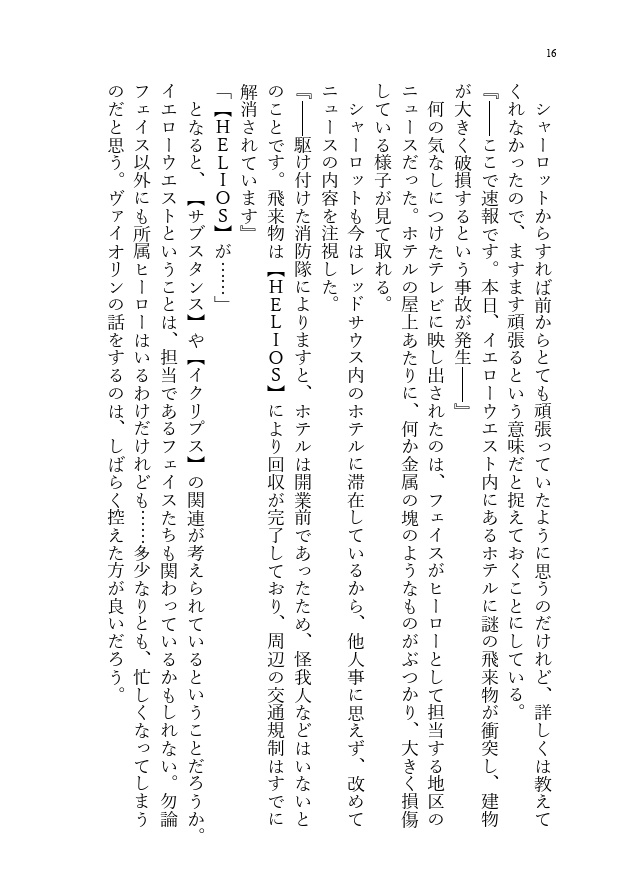 16
　シャーロットからすれば前からとても頑張っていたように思うのだけれど、詳しくは教えて
くれなかったので、ますます頑張るという意味だと捉えておくことにしている。
『――ここで速報です。本日、イエローウエスト内にあるホテルに謎の飛来物が衝突し、建物
が大きく破損するという事故が発生――』
　何の気なしにつけたテレビに映し出されたのは、フェイスがヒーローとして担当する地区の
ニュースだった。ホテルの屋上あたりに、何か金属の塊のようなものがぶつかり、大きく損傷
している様子が見て取れる。
　シャーロットも今はレッドサウス内のホテルに滞在しているから、他人事に思えず、改めて
ニュースの内容を注視した。
『――駆け付けた消防隊によりますと、ホテルは開業前であったため、怪我人などはいないと
のことです。飛来物は【ＨＥＬＩＯＳ】により回収が完了しており、周辺の交通規制はすでに
解消されています』
「【ＨＥＬＩＯＳ】が……」
　となると、【サブスタンス】や【イクリプス】の関連が考えられているということだろうか。
イエローウエストということは、担当であるフェイスたちも関わっているかもしれない。勿論
フェイス以外にも所属ヒーローはいるわけだけれども……多少なりとも、忙しくなってしまう
のだと思う。ヴァイオリンの話をするのは、しばらく控えた方が良いだろう。